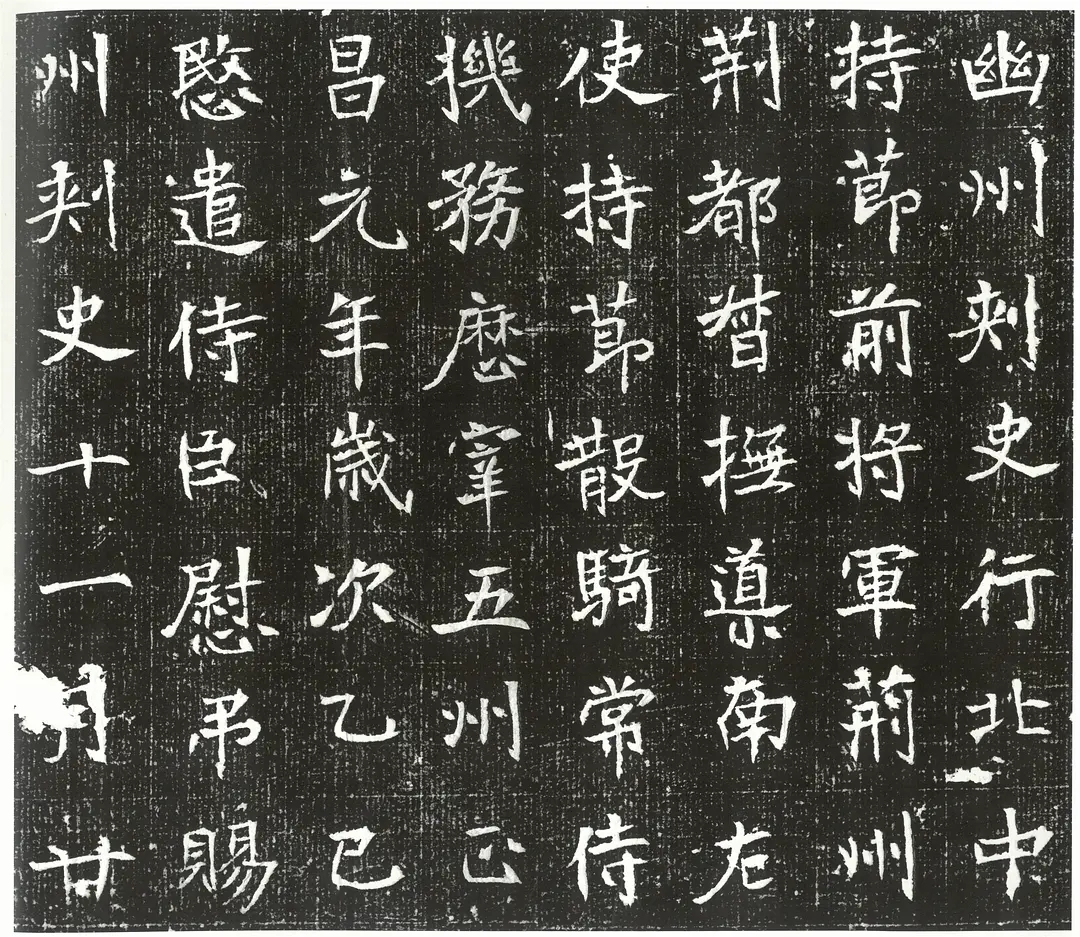 幽州刾史行北中
持莭前將軍荊州
荊都督撫導南
使持莭散騎常侍
機務歷宰五州正
昌元年歲次乙巳
愍遣侍臣慰弔賜
州刾史十一月廿